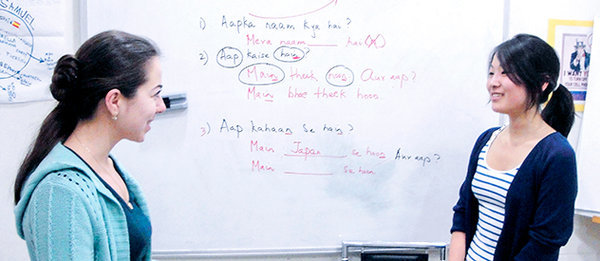 SAMUEL
1) Aapka naam kya hai?
Mera naam ____ hai (x)
2) Aap kaise hain?
Main theek hoon. Aur aap?
Main bhot theek hoon
3) Aap kahaan se hain?
Main Japan se hoon Aur aap?
Main ____ se hoon
I WANT YOU